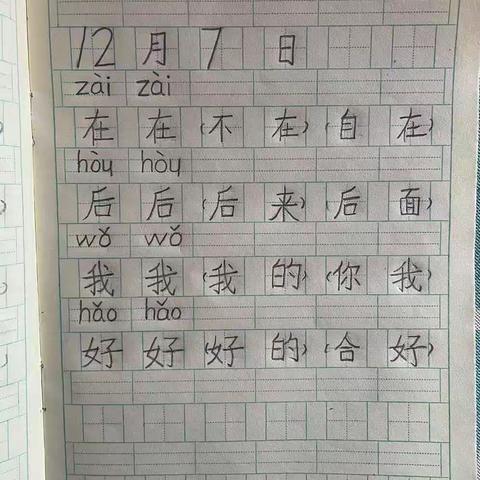 12月7日
zài zài
在 在 (不 在) (自 在)
hòu hòu
后 后 (后 来) (后 面)
wǒ wǒ
我 我 (我 的) (你 我)
hǎo hǎo
好 好 (好 的) (合 好)